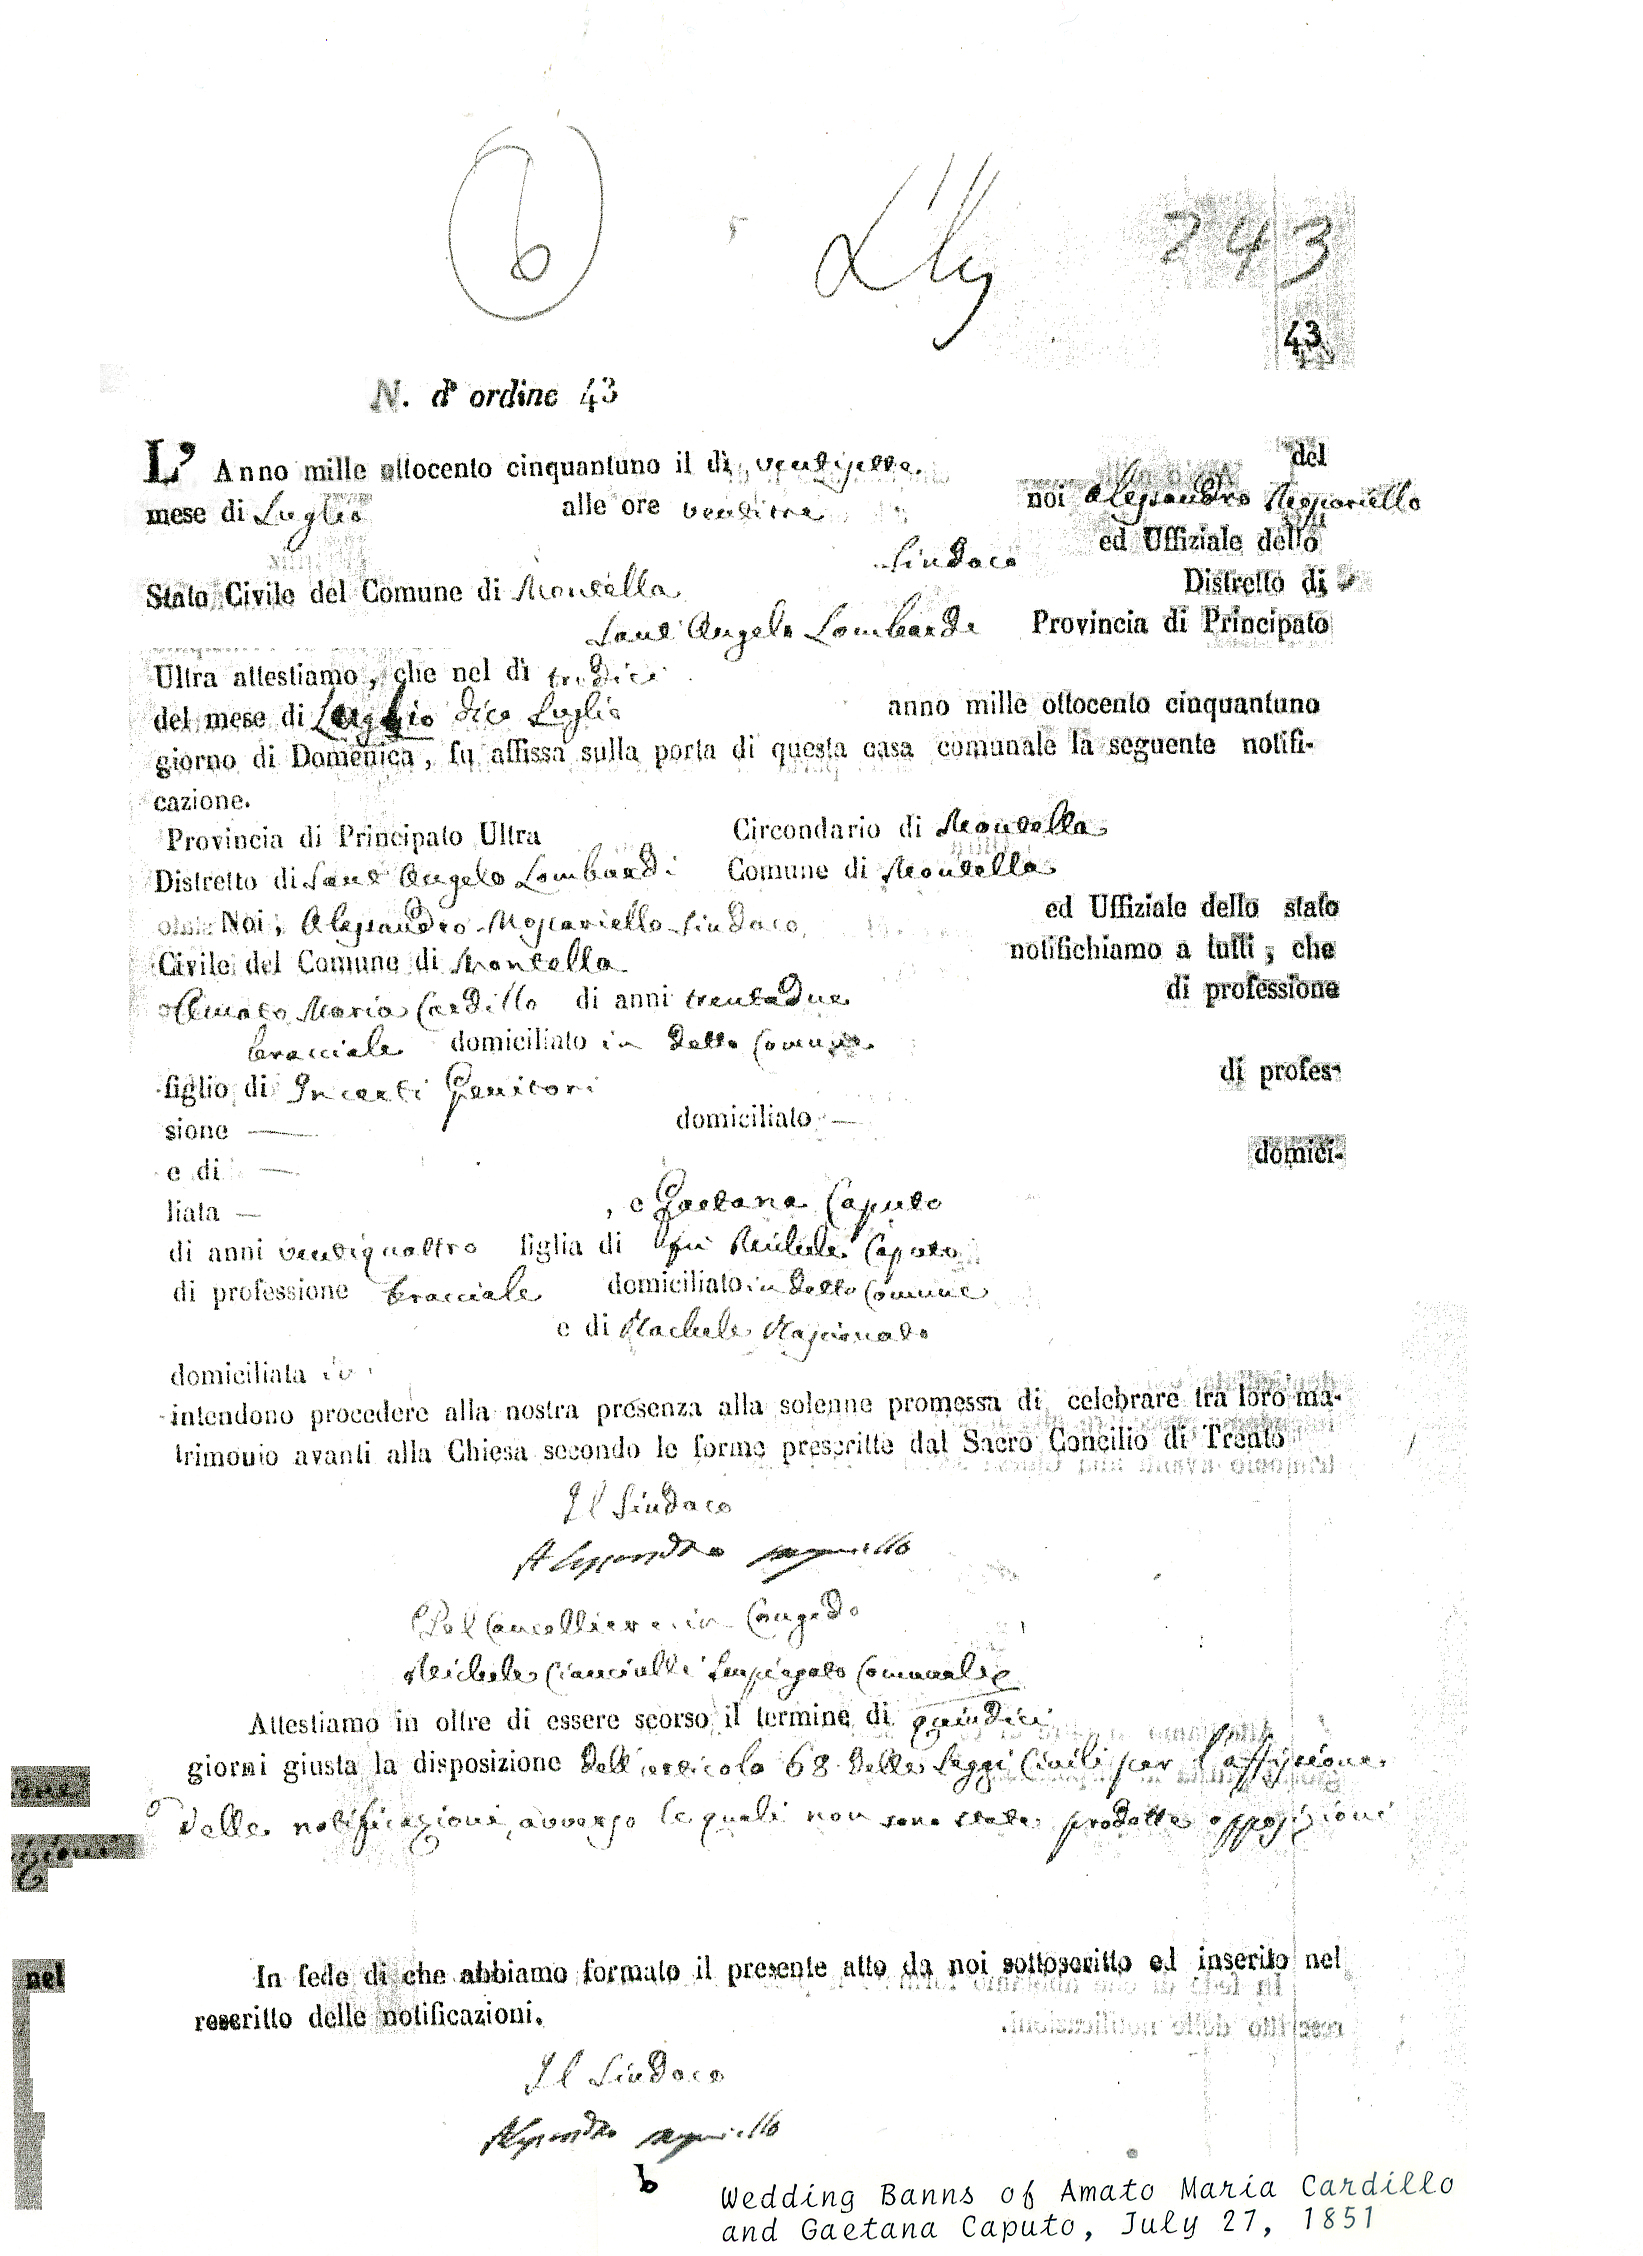 6
243
43
N. d' ordine 43
L' Anno mille ottocento cinquantuno il dì ventisette del
mese di Luglio alle ore ventitre noi Alessandro Moscariello
Sindaco ed Uffiziale dello
Stato Civile del Comune di Montella Distretto di
Sant'Angelo Lombardi Provincia di Principato
Ultra attestiamo, che nel dì tredici
del mese di Luglio dico Luglio anno mille ottocento cinquantuno
giorno di Domenica, fu affissa sulla porta di questa casa comunale la seguente notifi-
cazione.
Provincia di Principato Ultra Circondario di Montella
Distretto di Sant Angelo Lombardi Comune di Montella
Noi, Alessandro Moscariello Sindaco ed Uffiziale dello stato
Civile del Comune di Montella notifichiamo a tutti, che
Amato Maria Cardillo di anni trentadue di professione
bracciale domiciliato in detto Comune
figlio di Incerti Genitori di profes-
sione — domiciliato —
e di — domici-
liata — , e Gaetana Caputo
di anni ventiquattro figlia di fu Michele Caputo
di professione bracciale domiciliato in detto Comune
e di Rachele
domiciliata ivi
intendono procedere alla nostra presenza alla solenne promessa di celebrare tra loro ma-
trimonio avanti alla Chiesa secondo le forme prescritte dal Sacro Concilio di Trento
Il Sindaco
Alessandro Moscariello
Pel Cancelliere in Congedo
Michele Cianciulli Impiegato Comunale
Attestiamo in oltre di essere scorso il termine di quindici
giorni giusta la disposizione dell'articolo 68 delle Leggi Civili per l'affissione
delle notificazioni, avverso le quali non sono state prodotte opposizioni
nel
In fede di che abbiamo formato il presente atto da noi sottoscritto ed inserito nel
rescritto delle notificazioni.
Il Sindaco
Alessandro Moscariello
b
Wedding Banns of Amato Maria Cardillo
and Gaetana Caputo, July 27, 1851